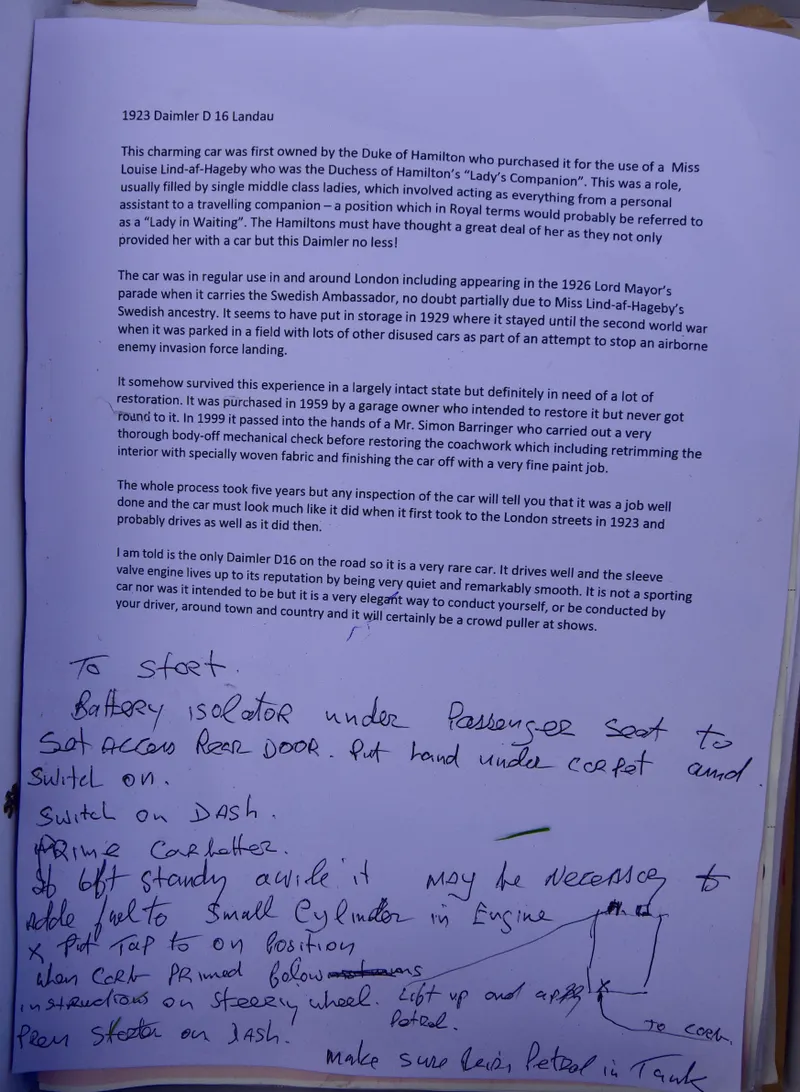 1923 Daimler D 16 Landau
This charming car was first owned by the Duke of Hamilton who purchased it for the use of a Miss
Louise Lind-af-Hageby who was the Duchess of Hamilton's "Lady's Companion". This was a role,
usually filled by single middle class ladies, which involved acting as everything from a personal
assistant to a travelling companion – a position which in Royal terms would probably be referred to
as a "Lady in Waiting". The Hamiltons must have thought a great deal of her as they not only
provided her with a car but this Daimler no less!
The car was in regular use in and around London including appearing in the 1926 Lord Mayor's
parade when it carries the Swedish Ambassador, no doubt partially due to Miss Lind-af-Hageby's
Swedish ancestry. It seems to have put in storage in 1929 where it stayed until the second world war
when it was parked in a field with lots of other disused cars as part of an attempt to stop an airborne
enemy invasion force landing.
It somehow survived this experience in a largely intact state but definitely in need of a lot of
restoration. It was purchased in 1959 by a garage owner who intended to restore it but never got
round to it. In 1999 it passed into the hands of a Mr. Simon Barringer who carried out a very
thorough body-off mechanical check before restoring the coachwork which including retrimming the
interior with specially woven fabric and finishing the car off with a very fine paint job.
The whole process took five years but any inspection of the car will tell you that it was a job well
done and the car must look much like it did when it first took to the London streets in 1923 and
probably drives as well as it did then.
I am told is the only Daimler D16 on the road so it is a very rare car. It drives well and the sleeve
valve engine lives up to its reputation by being very quiet and remarkably smooth. It is not a sporting
car nor was it intended to be but it is a very elegant way to conduct yourself, or be conducted by
your driver, around town and country and it will certainly be a crowd puller at shows.
To start.
Battery isolator under Passenger seat to
Get Access Rear DOOR. Put hand under carpet and
Switch on.
Switch on DASH.
PRIME
If left standy awile it may be Necessary to
Adde fuel to Small Cylinder in Engine
x Put Tap to on Position
when Carb PRIMED folow
instructions on steering wheel. Lift up and apply
Petrol.
Press Starter on DASH.
To Carb.
Make sure Petrol in Tank